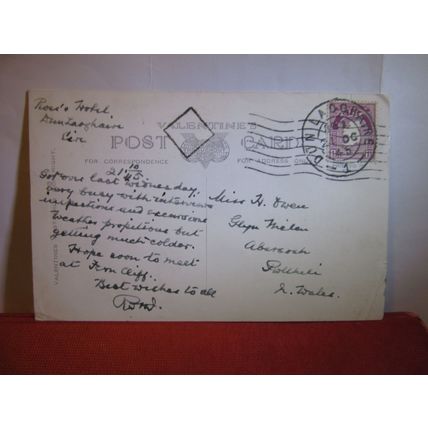 Ross's Hotel
Dunlaoghaire
Eire
VALENTINE'S
POST CARD
FOR CORRESPONDENCE
FOR ADDRESS ONLY
21 10 45
Got over last Wednesday,
busy with interviews
inspections and excursions
Weather propitious but
getting much colder.
Hope soon to meet
at Fron Cliff.
Best wishes to all
Miss H. Owen
Glyn
Abersoch
Pwllheli
N. Wales.
VALENTINES
DUN LAOGHAIRE